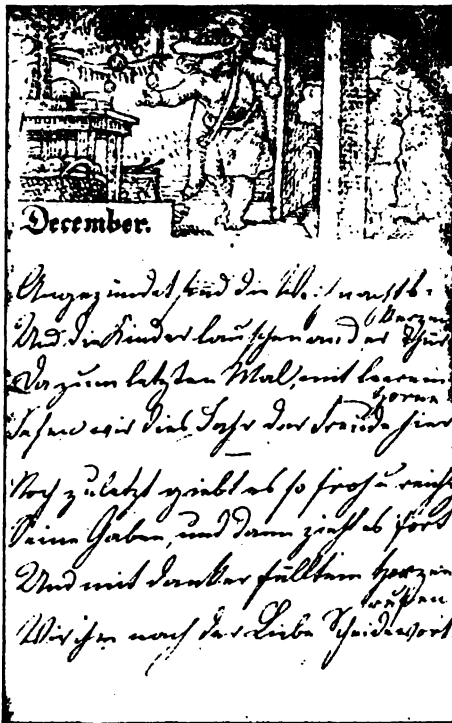 December.
Angezündet sind die Weihnachts-
Kerzen
Und die Kinder lauschen an der Thür
Da zum letzten Mal, mit
Sehen wir dies Jahr der Freude hier
Noch zuletzt giebt es so froh u reich
Seine Gaben, und dann zieht es fort
Und mit dankerfülltem Herzen
rufen
Wir ihm nach der Liebe Scheidewort